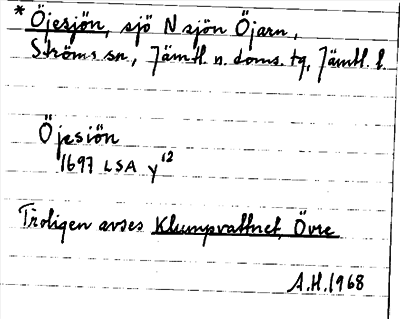 * Öjesjön, sjö N sjön Öjarn,
Ströms sn, Jämtl. n. doms. tg, Jämtl. l.
Öjesiön
1697 LSA y12
Troligen avses Klumpvattnet, Övre
A.H. 1968